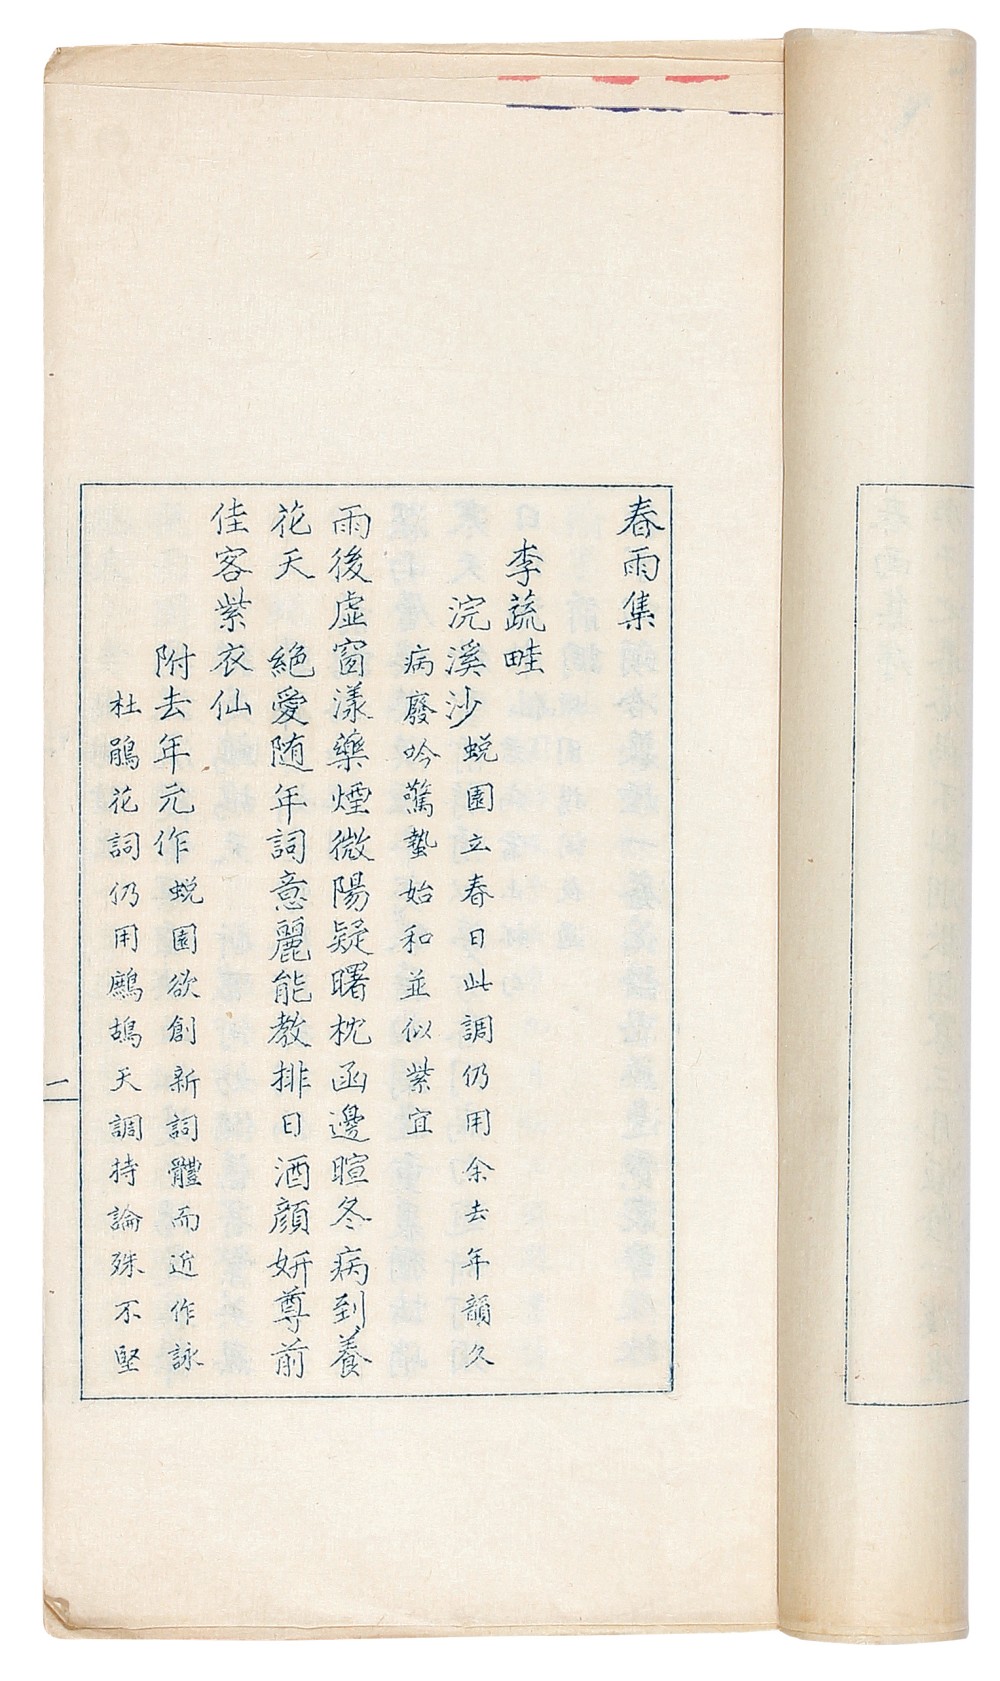 春雨集
李蔬畦
浣溪沙蜕園立春日此調仍用余去年韻久
病廢吟驚蟄始和並似紫宜
雨後虛窗漾藥煙微陽疑曙枕函邊暄冬病到養
花天　絕愛随年詞意麗能教排日酒顔妍尊前
佳客紫衣仙
附去年元作蜕園欲創新詞體而近作詠
杜鵑花詞仍用鷓鴣天調持論殊不堅
二